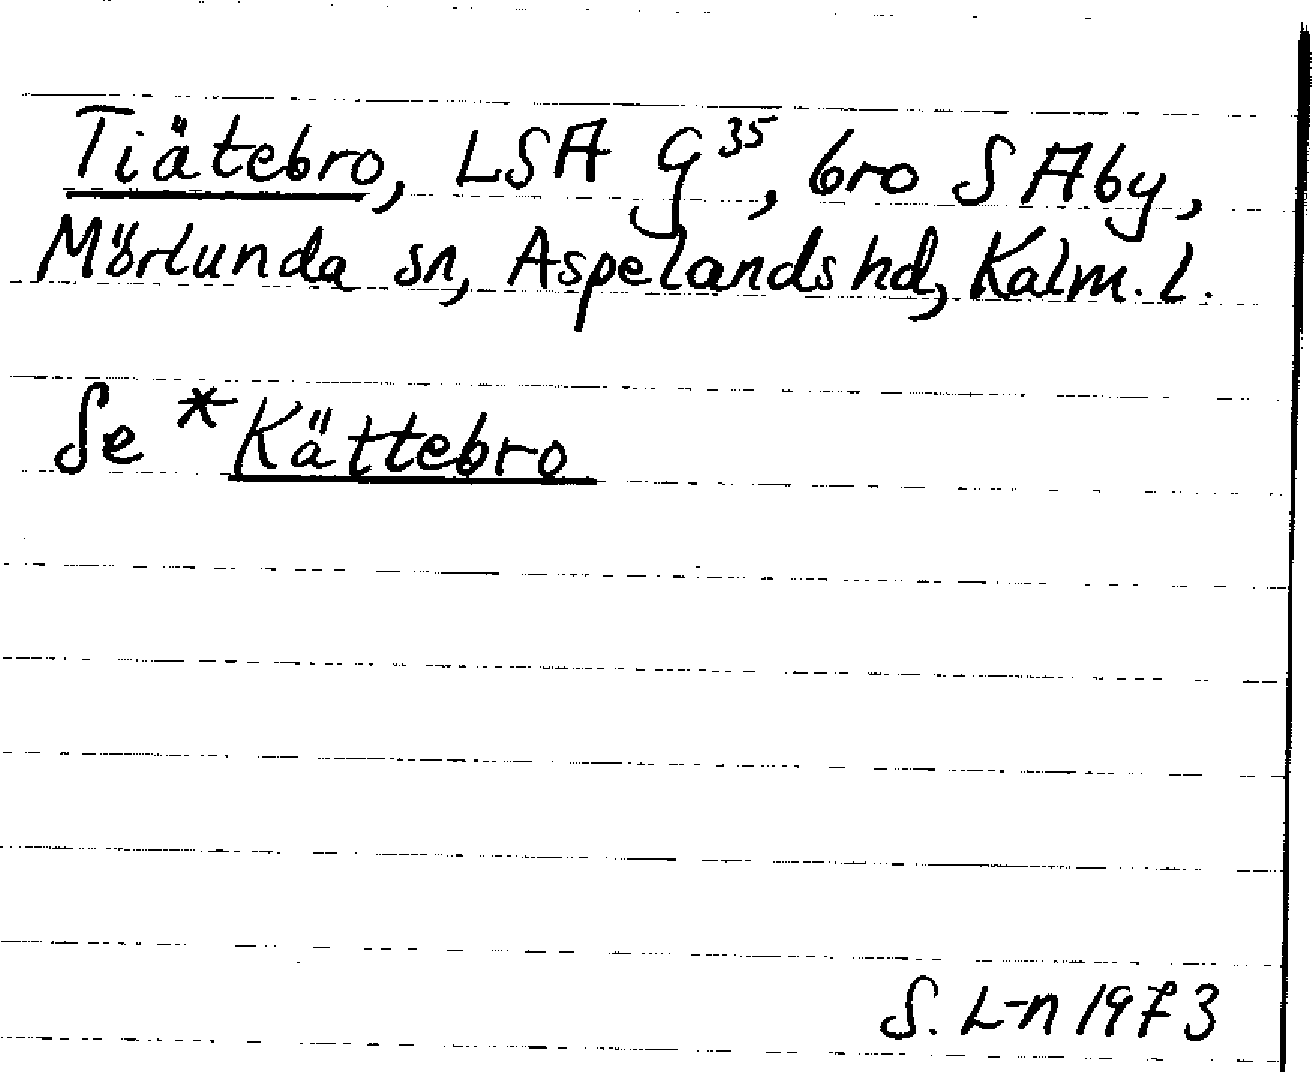 Tiätebro, LSA G³⁵, bro S Åby,
Mörlunda sn, Aspelands hd, Kalm. l.
Se *Kättebro
S. L-n 1973